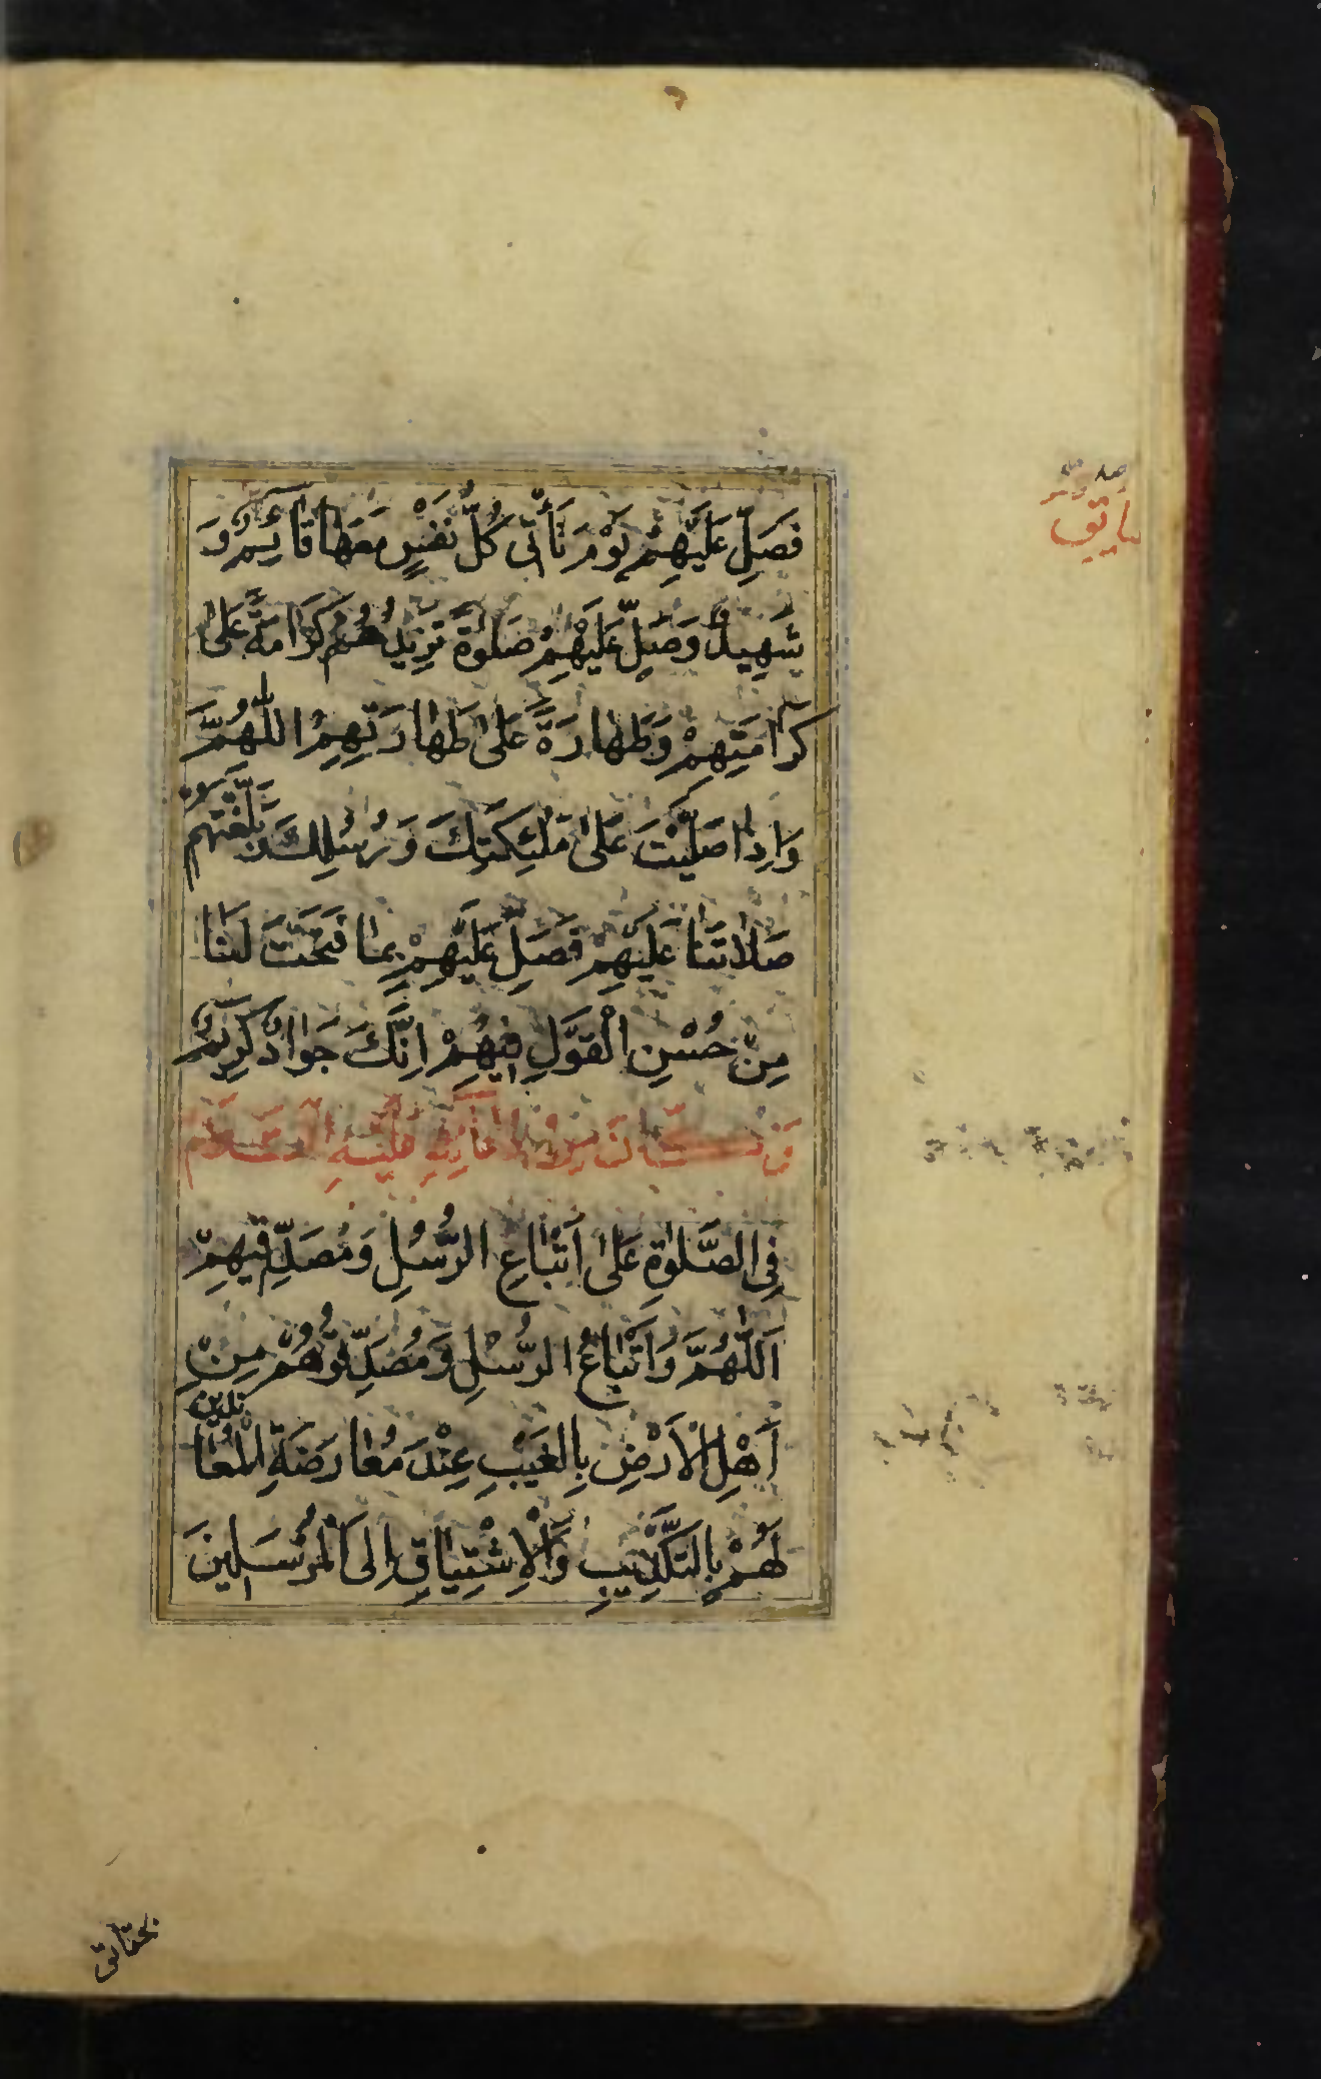 فَصَلِّ عَلَيْهِمْ يَوْمَ تَأْتِى كُلُّ نَفْسٍ مَعَهَا قَائِمٌ وَ
شَهِيدٌ وَصَلِّ عَلَيْهِمْ صَلٰوةً تَزِيْدُهُمْ كَرَامَةً عَلٰى
كَرَامَتِهِمْ وَطَهَارَةً عَلٰى طَهَارَتِهِمْ اللّٰهُمَّ
وَاِذَا صَلَّيْتَ عَلٰى مَلٰئِكَتِكَ وَرُسُلِكَ وَبَلَّغْتَهُمْ
صَلَاتَنَا عَلَيْهِمْ فَصَلِّ عَلَيْهِمْ بِمَا فَتَحْتَ لَنَا
مِنْ حُسْنِ الْقَوْلِ فِيْهِمْ اِنَّكَ جَوَادٌ كَرِيْمٌ
وَ كَانَ مِنْ دُعَائِهِ عَلَيْهِ السَّلَام
فِى الصَّلٰوةِ عَلٰى اَتْبَاعِ الرُّسُلِ وَمُصَدِّقِيْهِمْ
اَللّٰهُمَّ وَاَتْبَاعُ الرُّسُلِ وَمُصَدِّقُوْهُمْ مِنْ
اَهْلِ الْاَرْضِ بِالْغَيْبِ عِنْدَ مُعَارَضَةِ الْمُعَانِدِيْنَ
لَهُمْ بِالتَّكْذِيْبِ وَالْاِشْتِيَاقِ اِلَى الْمُرْسَلِيْنَ
بحقائق